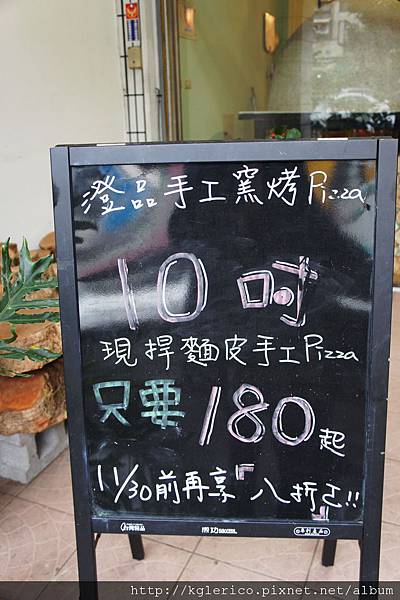 澄品手工窯烤Pizza
10吋
現捍麵皮手工Pizza
只要
180起
11/30前再享『八折』!!
http://kglerico.pixnet.net/album